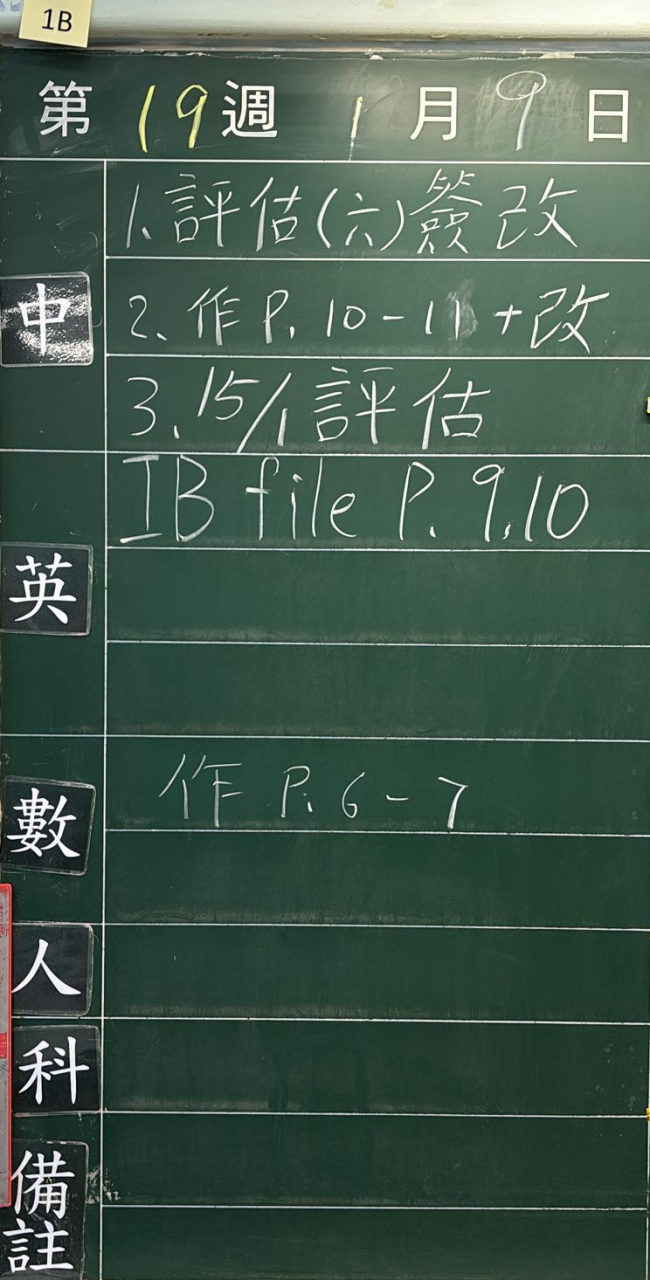 1B
第 19 週 1 月 9 日
中
1. 評估(六)簽改
2. 作 P. 10-11 +改
3. 15/1 評估
英
IB file P. 9,10
數
作 P. 6-7
人
科
備註